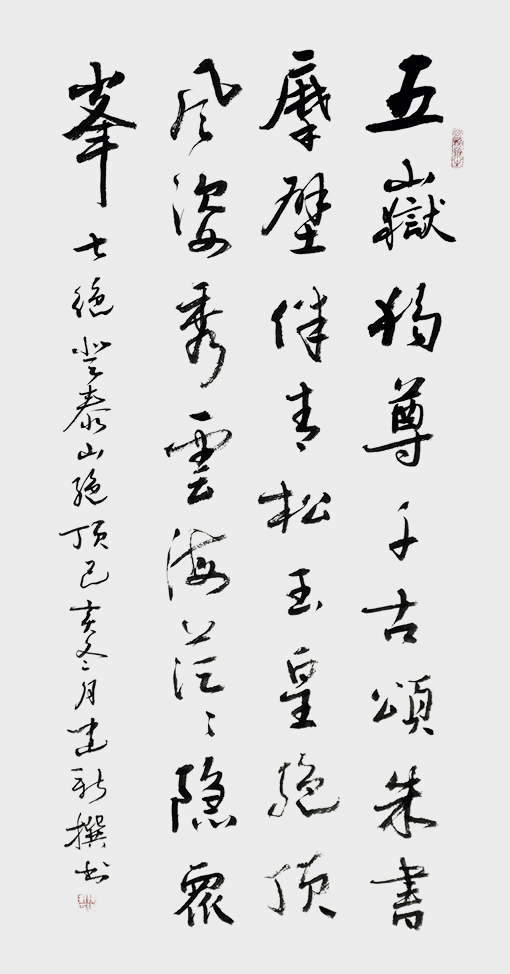 五嶽獨尊千古頌朱書
摩壁伴青松玉皇絶頂
風姿秀雲海茫〻隐眾
峯
七絶登泰山絶頂己亥冬月建新撰书